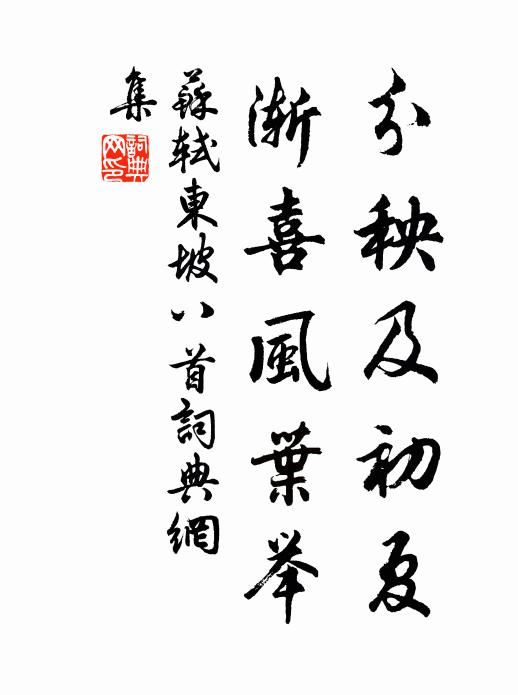 分秧及初夏
漸喜風葉举
蘇軾東坡八首詞典網
集
詞典
网印